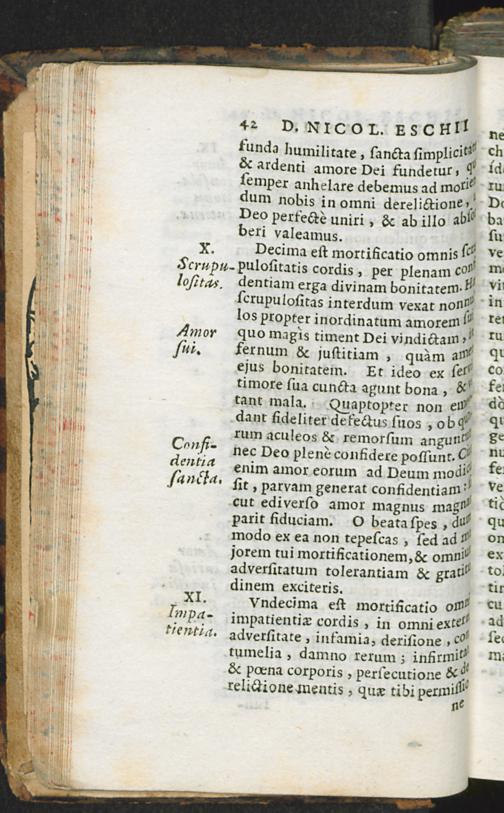 42 D. NICOL. ESCHII
funda humilitate, ſancta ſimplicitat
& ardenti amore Dei fundetur, qu
ſemper anhelare debemus ad morien
dum nobis in omni derelictione,
Deo perfectè uniri, & ab illo abſor
beri valeamus.
X.
Scrupu-
loſitas.
Decima eſt mortificatio omnis ſcru
puloſitatis cordis, per plenam conf
dentiam erga divinam bonitatem. H
ſcrupuloſitas interdum vexat nonnu
los propter inordinatum amorem ſui
Amor
ſui.
quo magìs timent Dei vindictam, in
fernum & juſtitiam, quàm ame
ejus bonitatem. Et ideo ex ſerv
timore ſua cuncta agunt bona, & v
tant mala. Quaptopter non emen
dant fideliter defectus ſuos, ob quo
rum aculeos & remorſum anguntur
Confi-
dentia
ſancta.
nec Deo plenè confidere poſſunt. Cu
enim amor eorum ad Deum modic
ſit, parvam generat confidentiam: ſ
cut ediverſo amor magnus magna
parit fiduciam. O beata ſpes, dum
modo ex ea non tepeſcas, ſed ad ma
jorem tui mortificationem, & omniu
adverſitatum tolerantiam & gratitu
dinem exciteris.
XI.
Impa-
tientia.
Vndecima eſt mortificatio omn
impatientiæ cordis, in omni extern
adverſitate, infamia, deriſione, con
tumelia, damno rerum; infirmitat
& pœna corporis, perſecutione & de
relictione mentis, quæ tibi permiſſio
ne